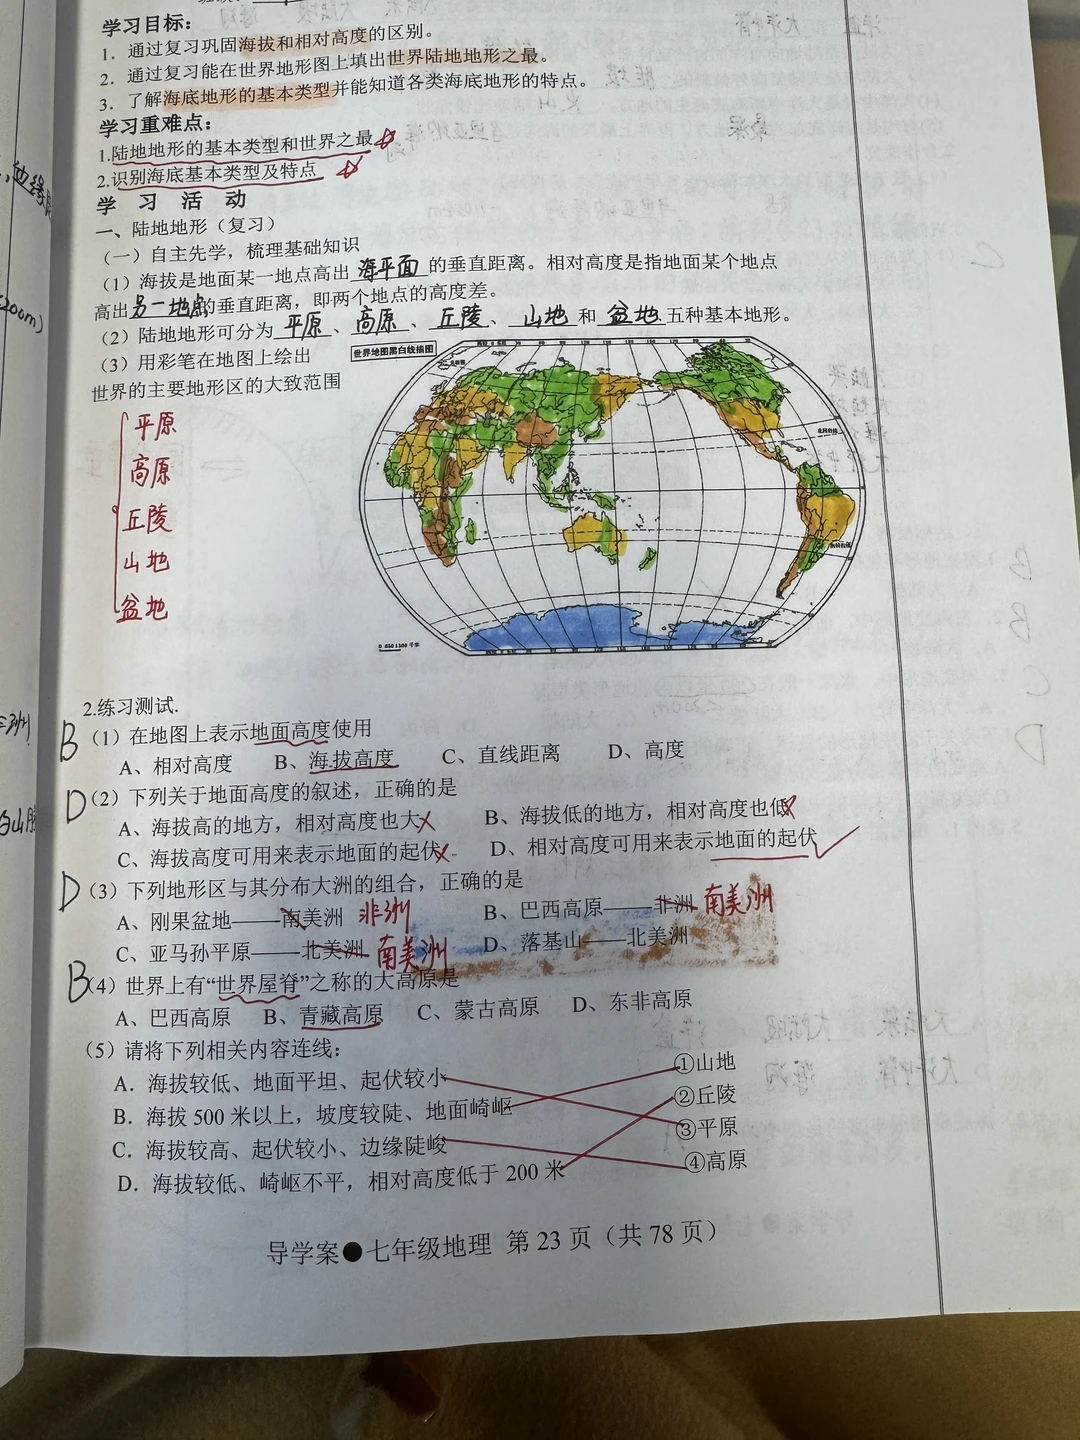 学习目标：
1．通过复习巩固海拔和相对高度的区别。
2．通过复习能在世界地形图上填出世界陆地地形之最。
3．了解海底地形的基本类型并能知道各类海底地形的特点。
学习重难点：
1.陆地地形的基本类型和世界之最
2.识别海底基本类型及特点
学 习 活 动
一、陆地地形（复习）
（一）自主先学，梳理基础知识
（1）海拔是地面某一地点高出 海平面 的垂直距离。相对高度是指地面某个地点
高出另一地点的垂直距离，即两个地点的高度差。
（2）陆地地形可分为 平原 、 高原 、 丘陵 、 山地 和 盆地 五种基本地形。
（3）用彩笔在地图上绘出
世界的主要地形区的大致范围
世界地图黑白线描图
平原
高原
丘陵
山地
盆地
2.练习测试.
B（1）在地图上表示地面高度使用
A、相对高度 B、海拔高度 C、直线距离 D、高度
D（2）下列关于地面高度的叙述，正确的是
A、海拔高的地方，相对高度也大 B、海拔低的地方，相对高度也低
C、海拔高度可用来表示地面的起伏 D、相对高度可用来表示地面的起伏
D（3）下列地形区与其分布大洲的组合，正确的是
A、刚果盆地——南美洲 非洲 B、巴西高原——非洲 南美洲
C、亚马孙平原——北美洲 南美洲 D、落基山——北美洲
B（4）世界上有“世界屋脊”之称的大高原是
A、巴西高原 B、青藏高原 C、蒙古高原 D、东非高原
（5）请将下列相关内容连线：
A．海拔较低、地面平坦、起伏较小 ①山地
B．海拔 500 米以上，坡度较陡、地面崎岖 ②丘陵
C．海拔较高、起伏较小、边缘陡峻 ③平原
D．海拔较低、崎岖不平，相对高度低于 200 米 ④高原
导学案●七年级地理 第 23 页（共 78 页）